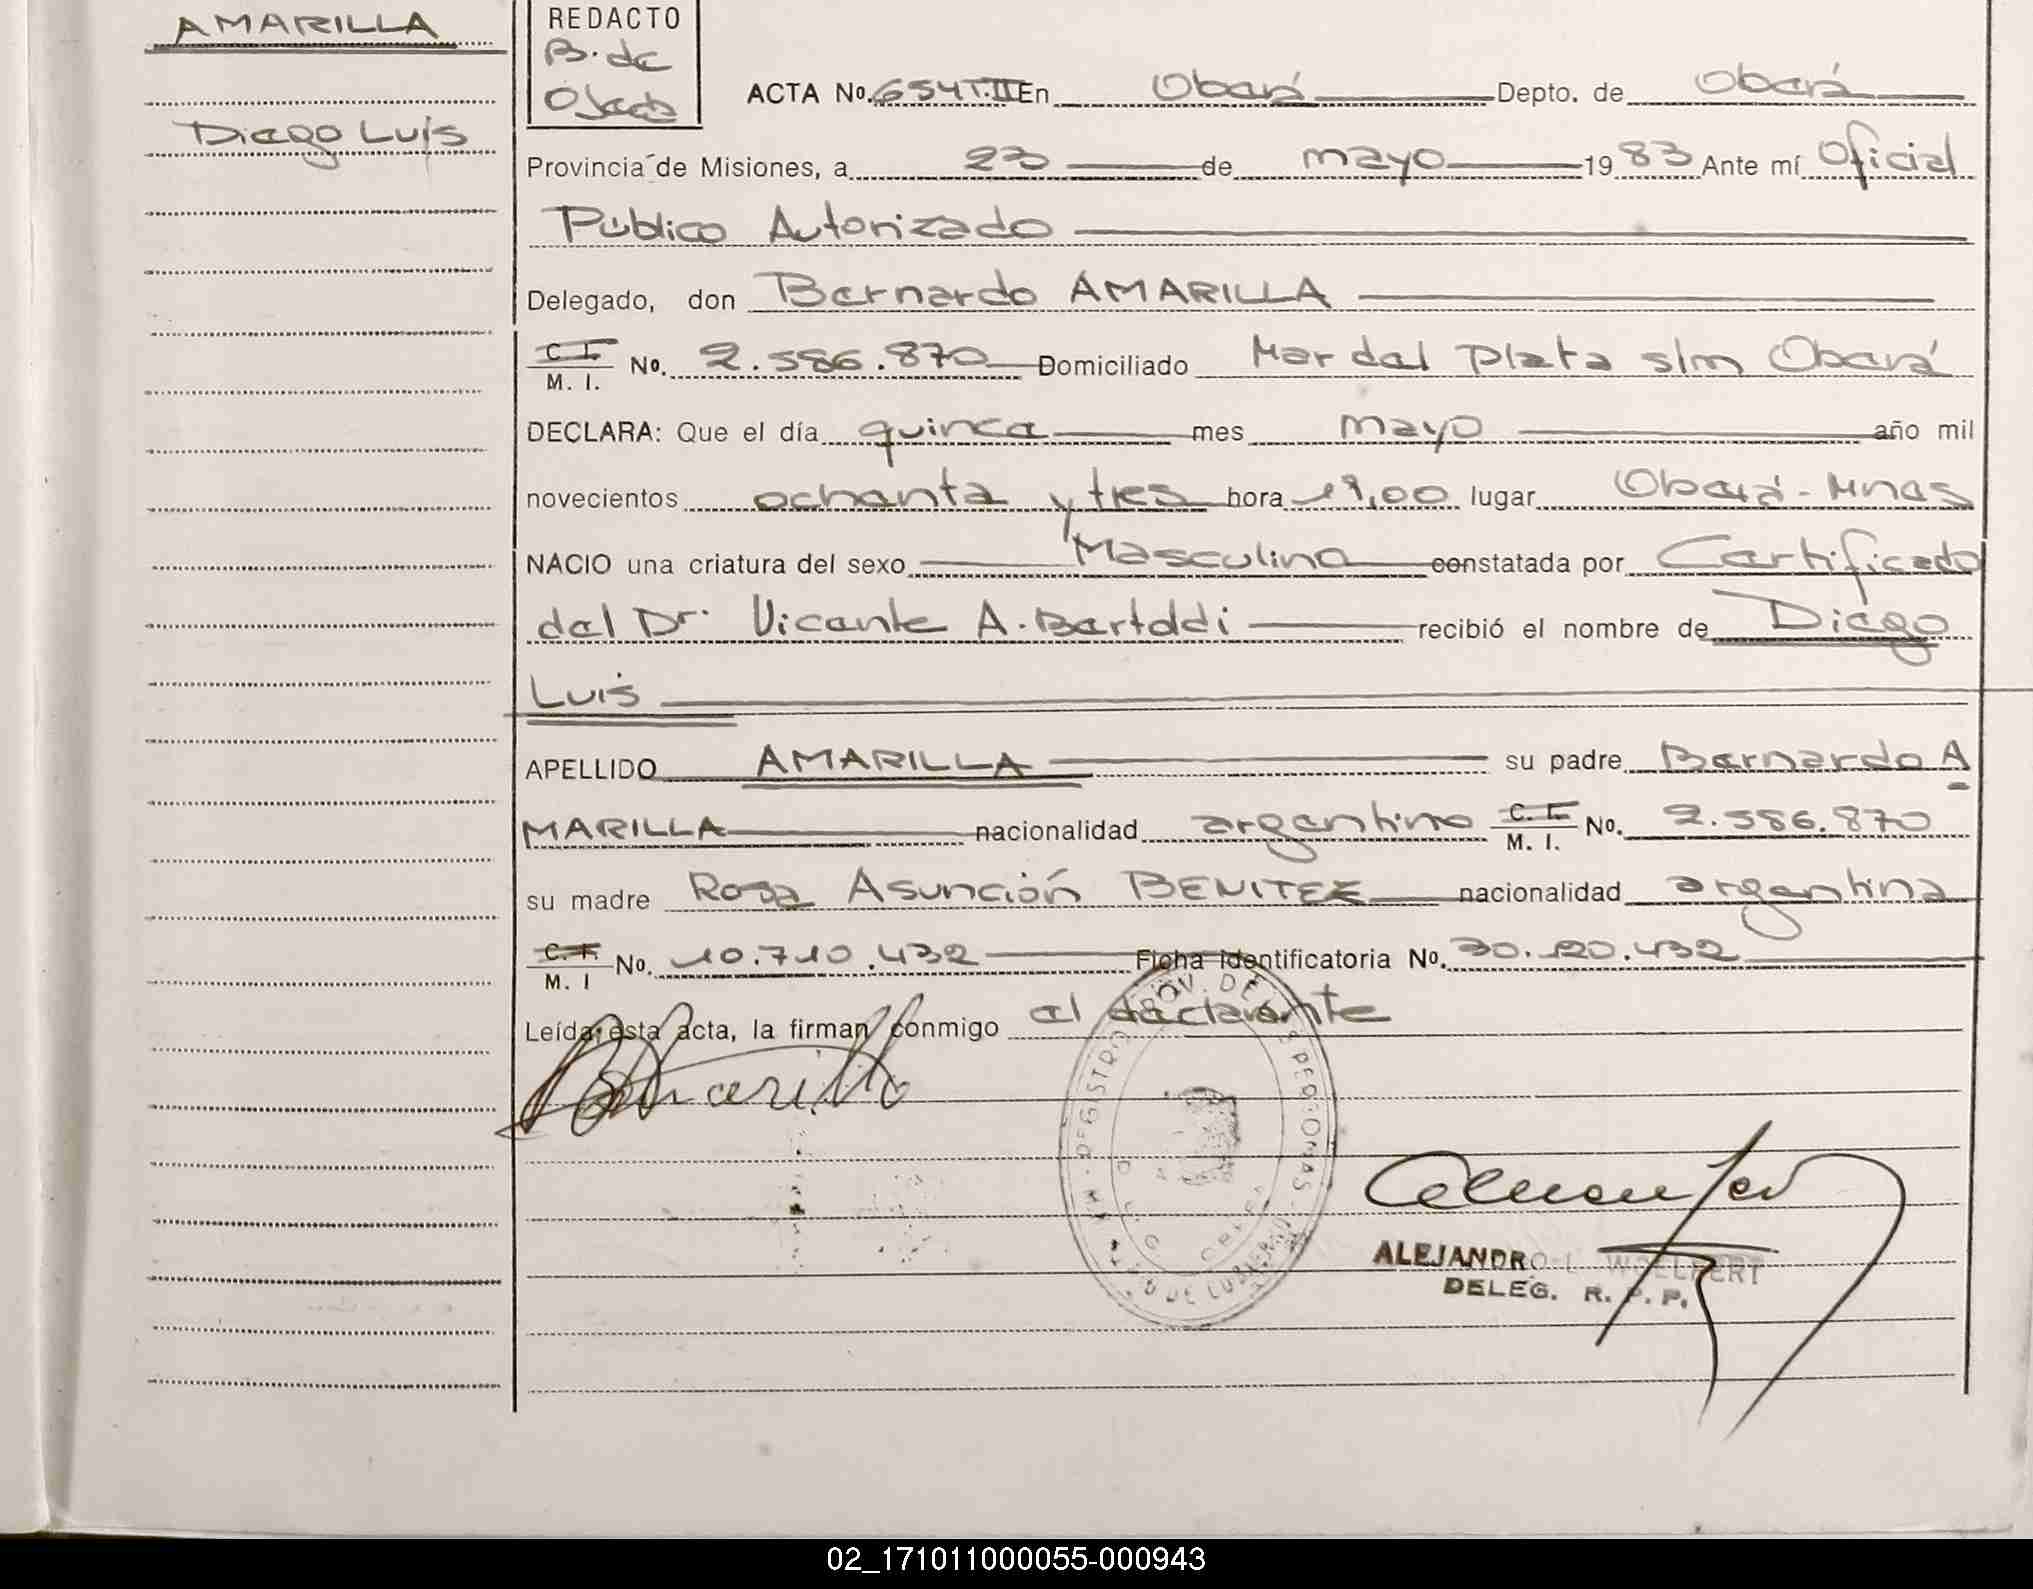 AMARILLA
Diego Luis
REDACTO
B. de
Ojeda
ACTA No. 654 T.III En Oberá Depto. de Oberá
Provincia de Misiones, a 23 de mayo 1983 Ante mí Oficial
Público Autorizado
Delegado, don Bernardo AMARILLA
C. I. M. I. No. 2.586.870 Domiciliado Mar del Plata s/m Oberá
DECLARA: Que el día quince mes mayo año mil
novecientos ochenta y tres hora 19,00 lugar Oberá-Mnes
NACIO una criatura del sexo Masculino constatada por Certificado
del Dr. Vicente A. Bertoldi recibió el nombre de Diego
Luis
APELLIDO AMARILLA su padre Bernardo A
MARILLA nacionalidad argentino C. I. M. I. No. 2.586.870
su madre Rosa Asunción BENITEZ nacionalidad argentina
C. I. M. I No. 10.710.432 Ficha Identificatoria No. 30.120.432
Leída esta acta, la firman conmigo el declarante
ALEJANDRO L. WOELFERT
DELEG. R. P. P.
02_171011000055-000943